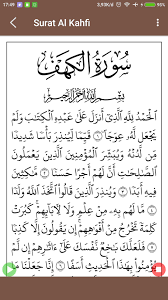 17:49
Surat Al Kahfi
سُورَةُ الكَهْفِ
بِسْمِ اللَّهِ الرَّحْمَٰنِ الرَّحِيمِ
الْحَمْدُ لِلَّهِ الَّذِي أَنزَلَ عَلَىٰ عَبْدِهِ الْكِتَٰبَ وَلَمْ
يَجْعَل لَّهُ عِوَجَا ۜ ۝ قَيِّمًا لِّيُنذِرَ بَأْسًا شَدِيدًا
مِّن لَّدُنْهُ وَيُبَشِّرَ الْمُؤْمِنِينَ الَّذِينَ يَعْمَلُونَ
الصَّٰلِحَٰتِ أَنَّ لَهُمْ أَجْرًا حَسَنًا ۝ مَّٰكِثِينَ
فِيهِ أَبَدًا ۝ وَيُنذِرَ الَّذِينَ قَالُوا اتَّخَذَ اللَّهُ وَلَدًا
۝ مَّا لَهُم بِهِ مِنْ عِلْمٍ وَلَا لِآبَائِهِمْ كَبُرَتْ
كَلِمَةً تَخْرُجُ مِنْ أَفْوَٰهِهِمْ إِن يَقُولُونَ إِلَّا كَذِبًا
۝ فَلَعَلَّكَ بَٰخِعٌ نَّفْسَكَ عَلَىٰ ءَاثَٰرِهِمْ إِن لَّمْ
يُؤْمِنُوا بِهَٰذَا الْحَدِيثِ أَسَفًا ۝ إِنَّا جَعَلْنَا مَا